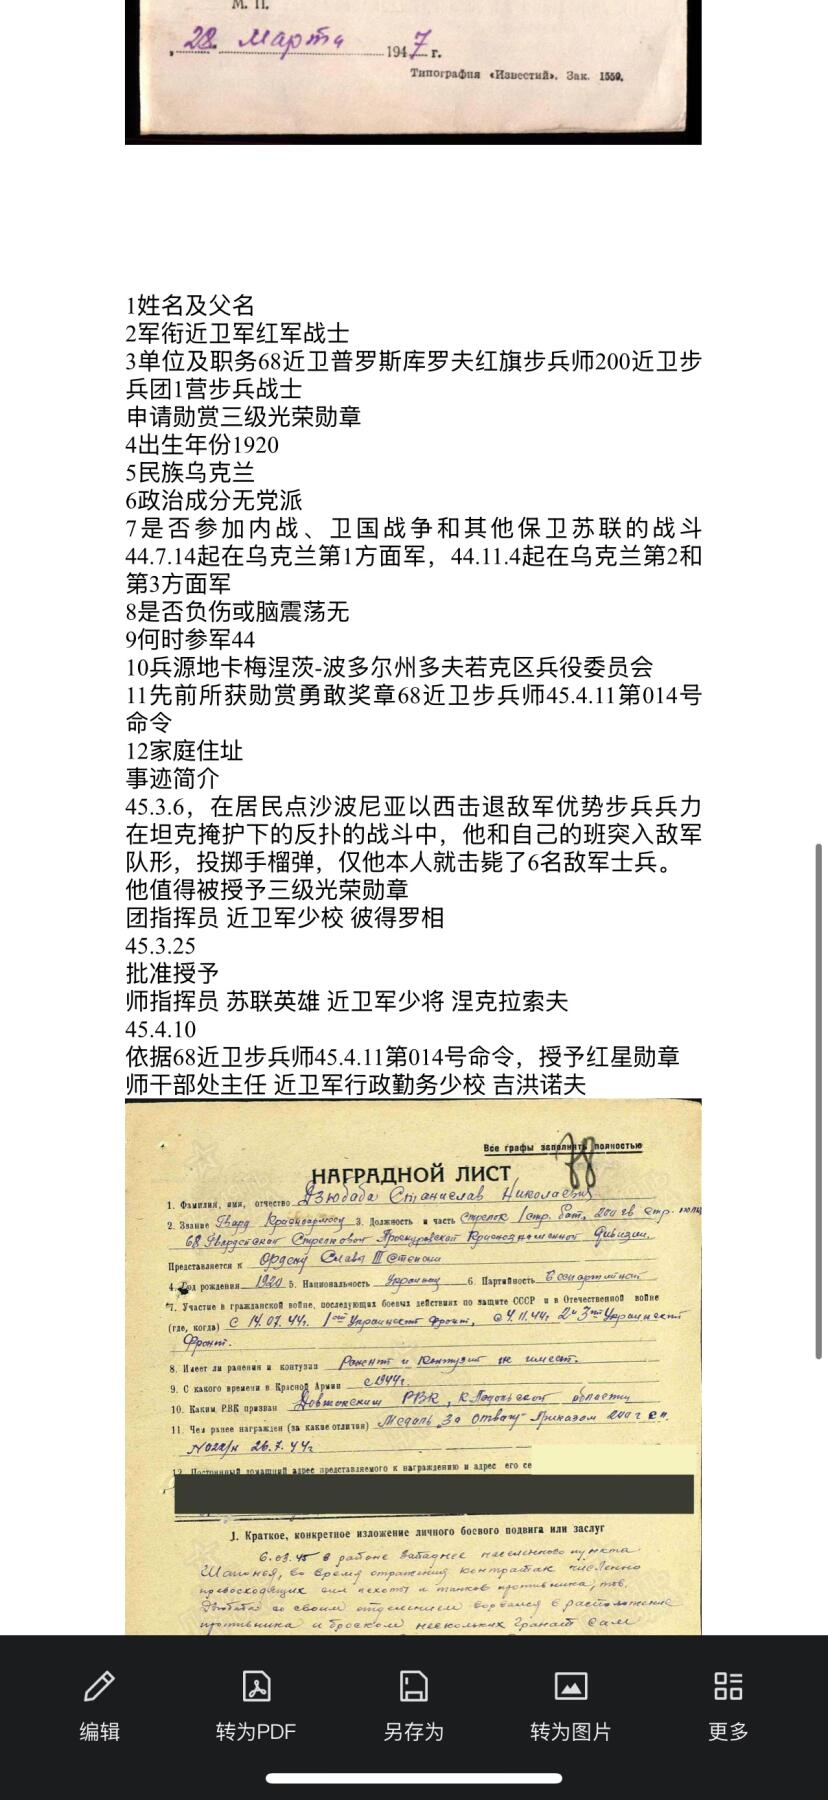 М. П.
„28. марта 1947 г.
Типография «Известий». Зак. 1559.
1姓名及父名
2军衔近卫军红军战士
3单位及职务68近卫普罗斯库罗夫红旗步兵师200近卫步
兵团1营步兵战士
申请勋赏三级光荣勋章
4出生年份1920
5民族乌克兰
6政治成分无党派
7是否参加内战、卫国战争和其他保卫苏联的战斗
44.7.14起在乌克兰第1方面军，44.11.4起在乌克兰第2和
第3方面军
8是否负伤或脑震荡无
9何时参军44
10兵源地卡梅涅茨-波多尔州多夫若克区兵役委员会
11先前所获勋赏勇敢奖章68近卫步兵师45.4.11第014号
命令
12家庭住址
事迹简介
45.3.6，在居民点沙波尼亚以西击退敌军优势步兵兵力
在坦克掩护下的反扑的战斗中，他和自己的班突入敌军
队形，投掷手榴弹，仅他本人就击毙了6名敌军士兵。
他值得被授予三级光荣勋章
团指挥员 近卫军少校 彼得罗相
45.3.25
批准授予
师指挥员 苏联英雄 近卫军少将 涅克拉索夫
45.4.10
依据68近卫步兵师45.4.11第014号命令，授予红星勋章
师干部处主任 近卫军行政勤务少校 吉洪诺夫
Все графы заполнять полностью
78
НАГРАДНОЙ ЛИСТ
1. Фамилия, имя, отчество Дзюбаба Станислав Николаевич
2. Звание Гвард. Красноармеец 3. Должность и часть Стрелок 1 стр. бат. 200 гв. стр. полка
68 Гвардейской Стрелковой Проскуровской Краснознаменной Дивизии.
Представляется к Ордену Слава III Степени
4. Год рождения 1920 5. Национальность Украинец 6. Партийность Беспартийный
7. Участие в гражданской войне, последующих боевых действиях по защите СССР и в Отечественной войне
(где, когда) С 14.07.44г. 1ый Украинский фронт, с 4.11.44г. 2и 3ий Украинский
Фронт.
8. Имеет ли ранения и контузии Ранений и Контузий не имеет.
9. С какого времени в Красной Армии с 1944г.
10. Каким РВК призван Довжокским РВК, К-Подольской области
11. Чем ранее награжден (за какие отличия) Медаль „За отвагу" Приказом 200 г сп.
№02/н 26.7.44г
12. Постоянный домашний адрес представляемого к награждению и адрес его се
I. Краткое, конкретное изложение личного боевого подвига или заслуг
6.03.45 в районе западнее населенного пункта
во время отражения контратак численно
превосходящих сил пехоты и танков противника, тов.
Дзюбаба со своим отделением ворвался в расположение
противника и броском нескольких гранат сам
编辑
转为PDF
另存为
转为图片
更多